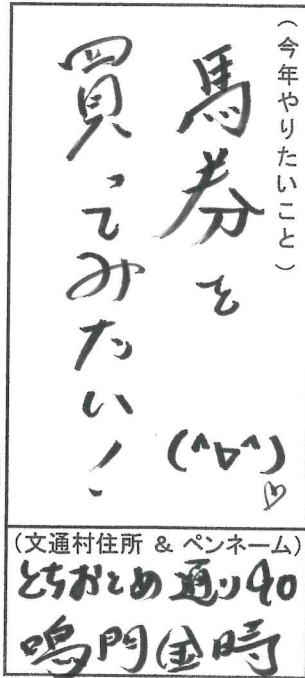 (今年やりたいこと)
馬券を
買ってみたい!
(^∇^)♡
(文通村住所 & ペンネーム)
とちおとめ通り40
鳴門金時